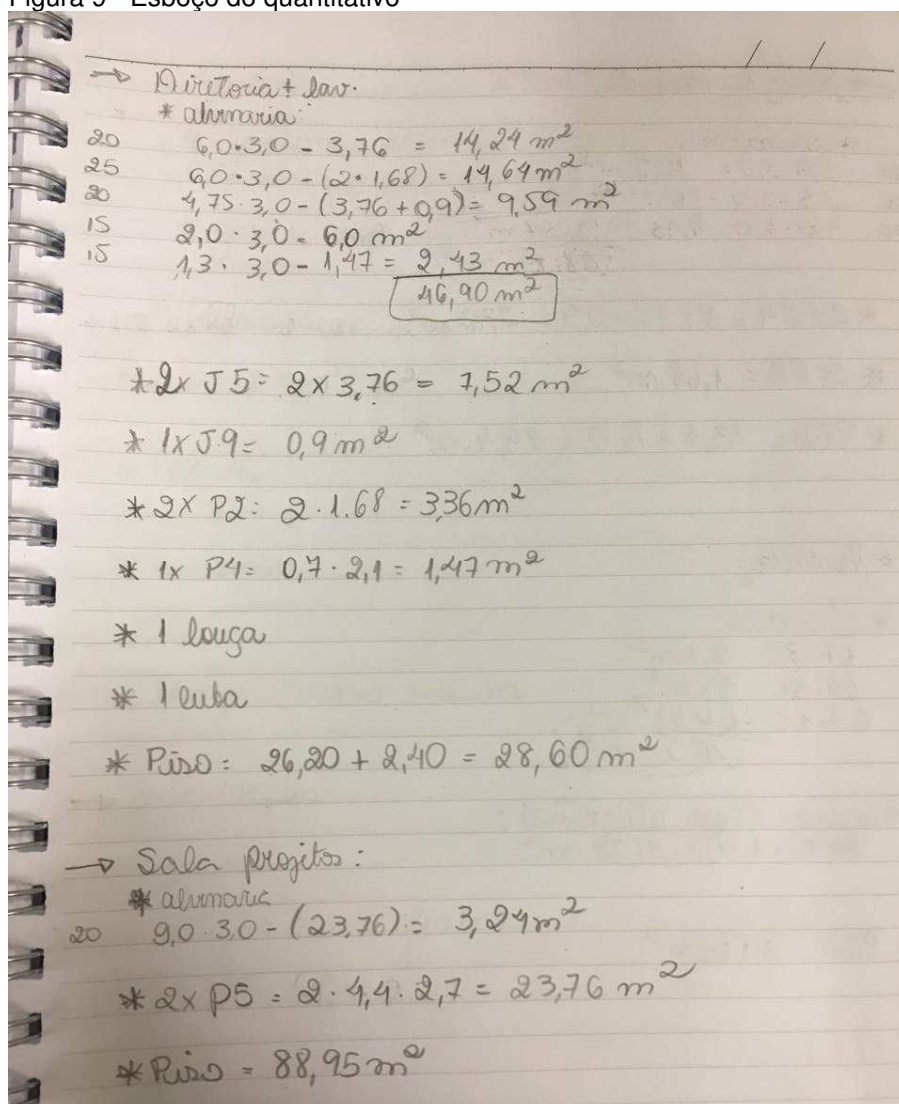 Figura 9 - Esboço do quantitativo
/ /
→ Diretoria + lav.
* alvenaria:
20 6,0 • 3,0 - 3,76 = 14,24 m²
25 6,0 • 3,0 - (2 • 1,68) = 14,64 m²
20 4,75 . 3,0 - (3,76 + 0,9) = 9,59 m²
15 2,0 . 3,0 = 6,0 m²
15 1,3 . 3,0 - 1,47 = 2,43 m²
46,90 m²
* 2x J5 = 2 x 3,76 = 7,52 m²
* 1x J9 = 0,9 m²
* 2x P2: 2 . 1.68 = 3,36 m²
* 1x P4 = 0,7 . 2,1 = 1,47 m²
* 1 louça
* 1 cuba
* Piso: 26,20 + 2,40 = 28,60 m²
→ Sala projetos:
* alvenaria
20 9,0 . 3,0 - (23,76) = 3,24 m²
* 2x P5 = 2 . 4,4 . 2,7 = 23,76 m²
* Piso = 88,95 m²